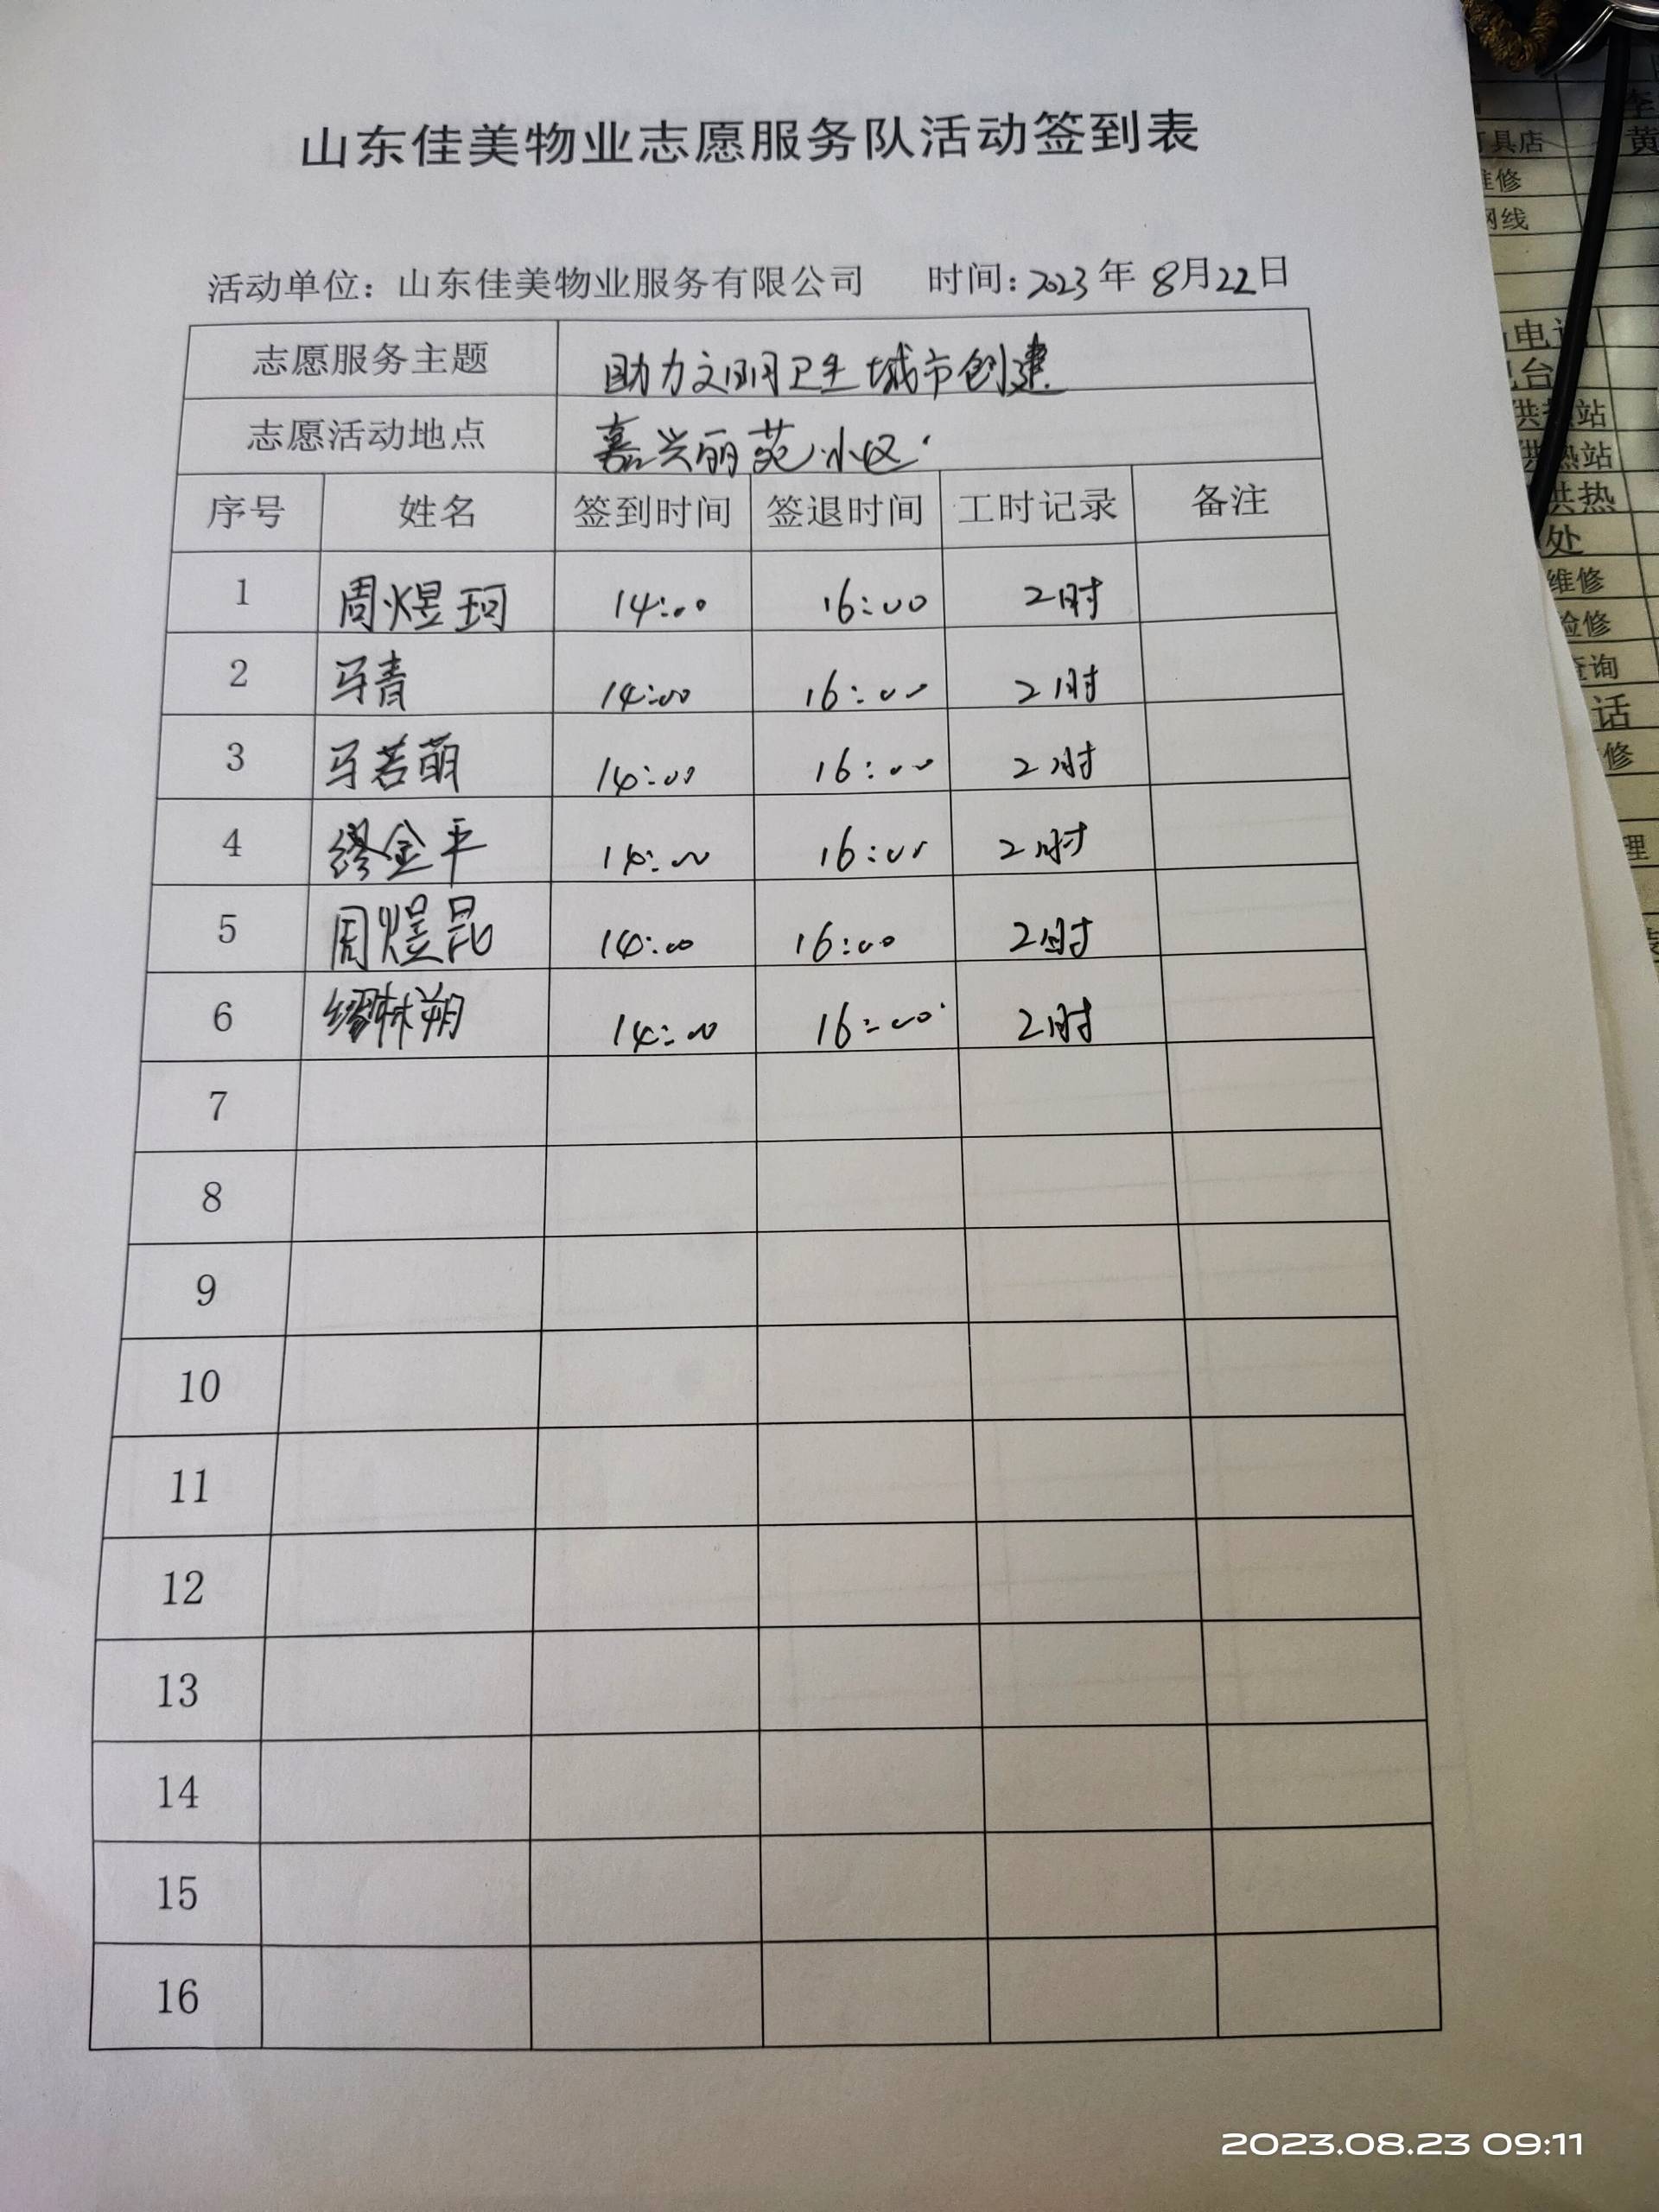 山东佳美物业志愿服务队活动签到表
活动单位：山东佳美物业服务有限公司 时间：2023年8月22日
志愿服务主题 助力文明卫生城市创建
志愿活动地点 嘉兴丽苑小区
序号 姓名 签到时间 签退时间 工时记录 备注
1 周煜珂 14:00 16:00 2时
2 马青 14:00 16:00 2时
3 马若萌 14:00 16:00 2时
4 缪金平 14:00 16:00 2时
5 周煜昆 14:00 16:00 2时
6 缪林朔 14:00 16:00 2时
7
8
9
10
11
12
13
14
15
16
李
具店 黄
维修
网线
电话
台
供热站
供热站
供热
处
维修
检修
查询
话
修
理
2023.08.23 09:11